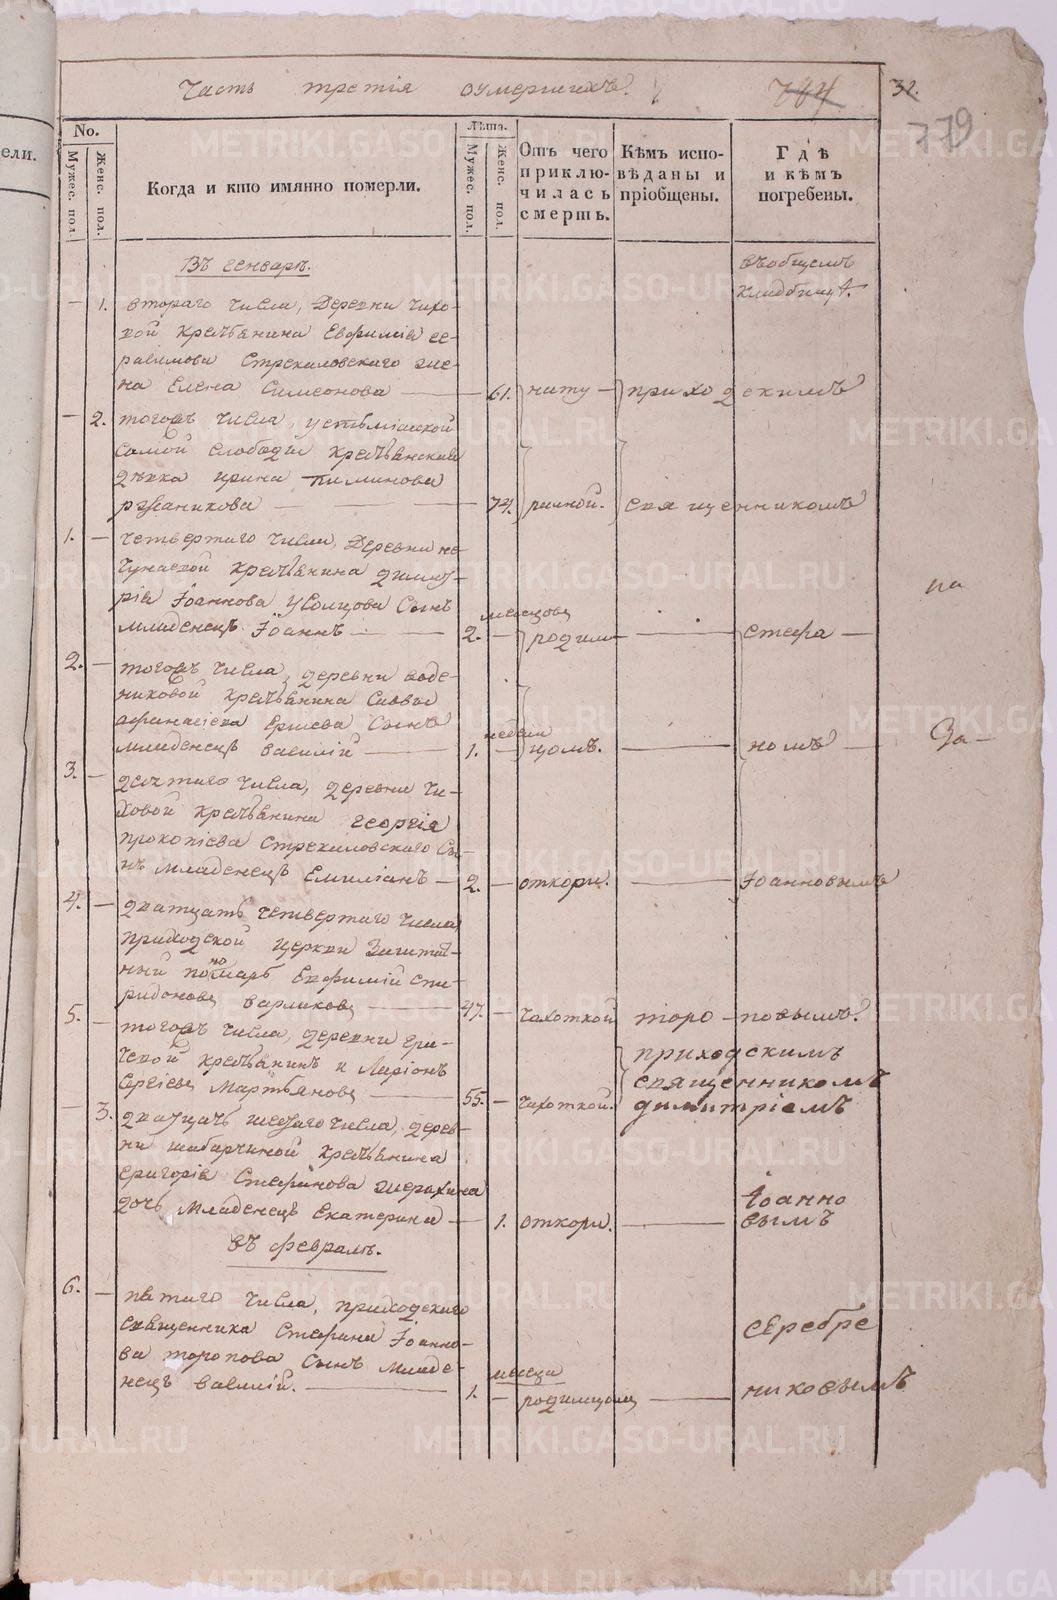 Часть третія оумершихъ.
744
32.
779
ели.
No.
Мужес. пол.
Женс. пол.
Когда и кто имянно померли.
Лѣта.
Мужес. пол.
Женс. пол.
Отъ чего приключилась смерть.
Кѣмъ исповѣданы и пріобщены.
Гдѣ и кѣмъ погребены.
въ общемъ
кладбищѣ.
Въ генварѣ.
1. втораго числа, Деревни Чихо-
вой крестьянина Евфимія Ге-
расимова Стрекаловскаго же-
на Елена Симеонова — 61. нату — приходскимъ
2. тогожъ числа,
самой слободы крестьянская
дѣвка Ирина Пиминова
— 74. ральной. священникомъ
1. — четвертаго числа, Деревни
крестьянина Димит-
рія Іоаннова Усолцова сынъ
младенецъ Іоаннъ — 2. месяцовъ — родим — стефа —
2. — тогожъ числа, деревни
крестьянина Саввы
Афанасіева Ершева сынъ
младенецъ Василій — 1. недели — цомъ. — номъ —
3. — десятаго числа, деревни Чи-
ховой крестьянина Георгія
Прокопіева Стрекаловскаго сы-
нъ младенецъ Емиліанъ — 2. — откори. — Іоанновымъ
4. — двадцать четвертаго числа
приходской церкви заштат-
ный пономарь Евфимій Спи-
ридоновъ Варлаковъ — 47. — чахоткой торо — повымъ.
5. — тогожъ числа, деревни
крестьянинъ Иларіонъ
Сергіевъ Мартьяновъ — 55. — чахоткой.
приходскимъ
священникомъ
димитріемъ
3. двадцать шестаго числа, дерев-
ни Шабарчиной крестьянина
Григорія Стефанова
дочь младенецъ Екатерина — 1. откори. —
Іоанно
вымъ
въ февралѣ.
6. — пятаго числа, приходскаго
священника Стефана Іоанно-
ва Торопова сынъ младе-
нецъ Василій. — 1. месяца — родимцомъ —
Серебре
никовымъ
на
За —
METRIKI.GASO-URAL.RU